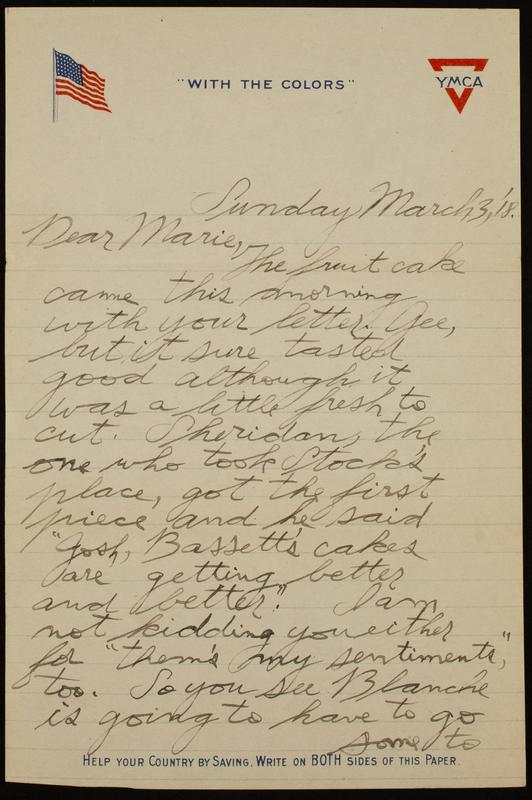 "WITH THE COLORS"
YMCA
Sunday March 3,'18.
Dear Marie,
The fruit cake
came this morning
with your letter. Gee,
but it sure tasted
good although it
was a little fresh to
cut. Sheridan, the
one who took Stock's
place, got the first
piece and he said
"Gosh, Bassett's cakes
are getting better
and better." I am
not kidding you either
for "them's my sentiments,"
too. So you see Blanche
is going to have to go
some to
HELP YOUR COUNTRY BY SAVING. WRITE ON BOTH SIDES OF THIS PAPER.